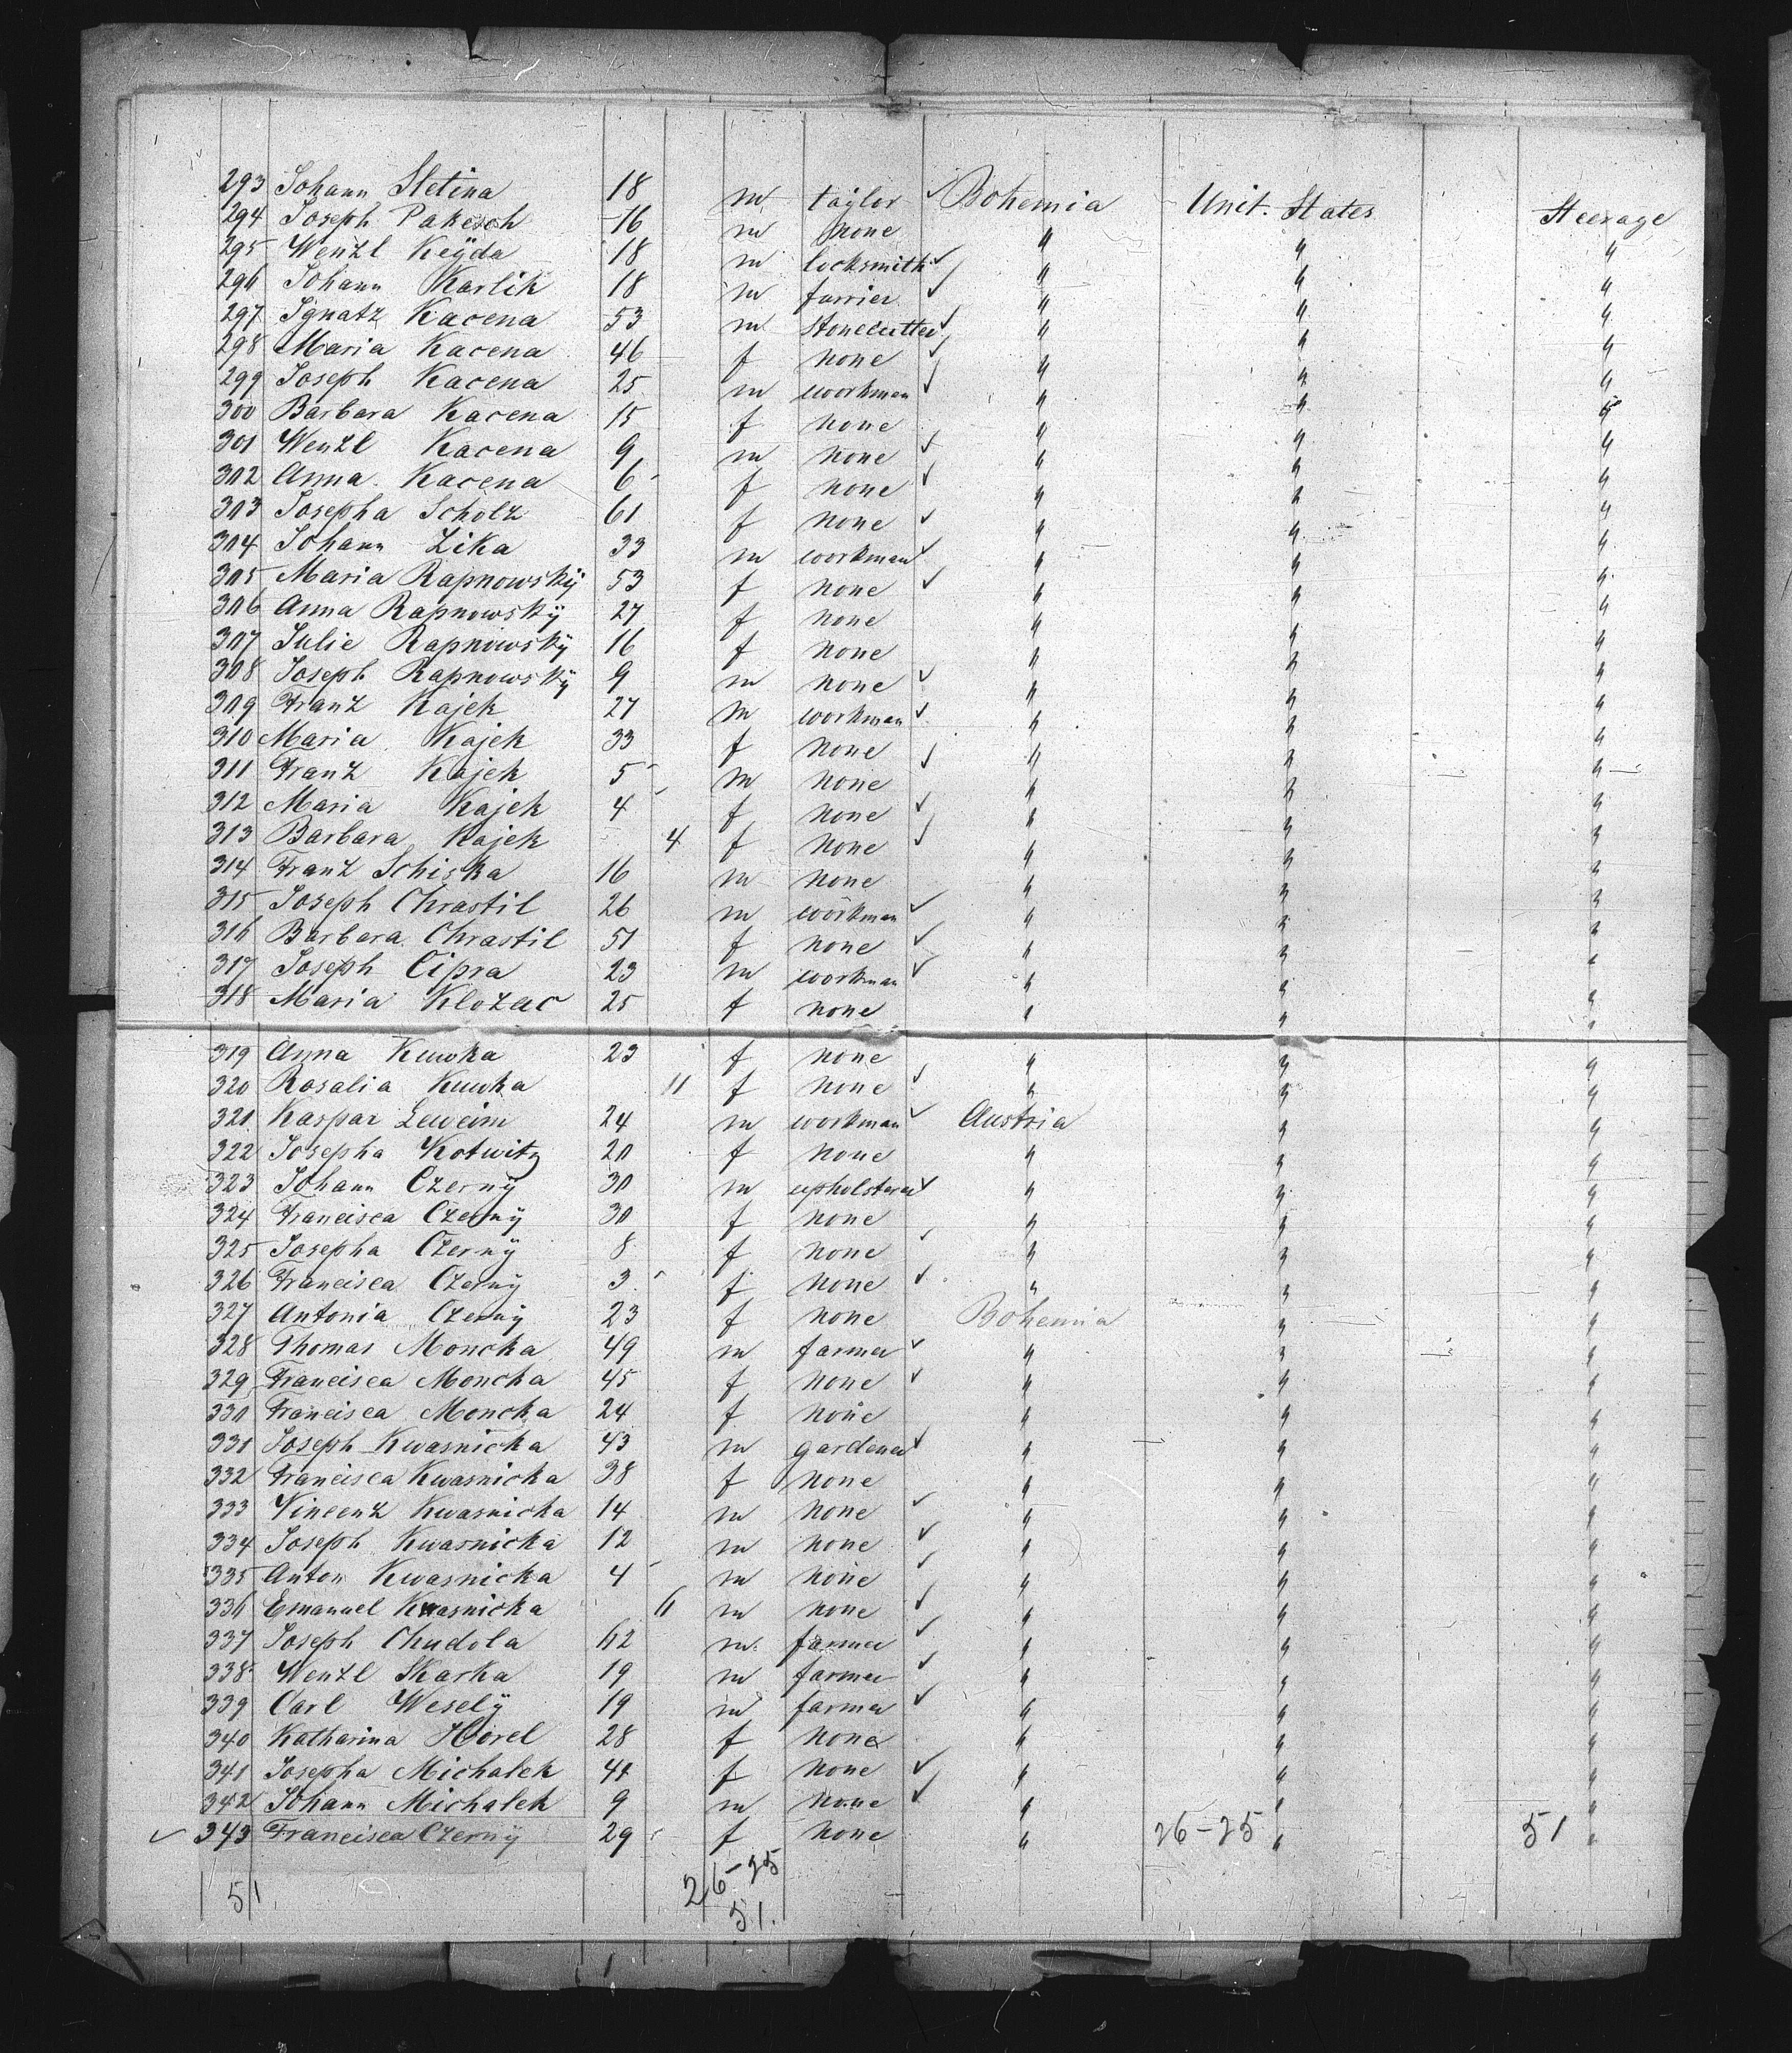 293 Johann Stetina 18 m taylor ✓ Bohemia Unit. States Steerage
294 Joseph Pakesch 16 m none " " "
295 Wenzl Keÿda 18 m locksmith ✓ " " "
296 Johann Karlik 18 m furrier ✓ " " "
297 Ignatz Kacena 53 m stonecutter ✓ " " "
298 Maria Kacena 46 f none ✓ " " "
299 Joseph Kacena 25 m workman ✓ " " "
300 Barbara Kacena 15 f none " " "
301 Wenzl Kacena 9 m none ✓ " " "
302 Anna Kacena 6 f none ✓ " " "
303 Josepha Scholz 61 f none ✓ " " "
304 Johann Zika 33 m workman ✓ " " "
305 Maria Rapnowskÿ 53 f none ✓ " " "
306 Anna Rapnowskÿ 27 f none " " "
307 Julie Rapnowskÿ 16 f none " " "
308 Joseph Rapnowskÿ 9 m none ✓ " " "
309 Franz Kajek 27 m workman ✓ " " "
310 Maria Kajek 33 f none " " "
311 Franz Kajek 5 m none ✓ " " "
312 Maria Kajek 4 f none ✓ " " "
313 Barbara Kajek 4 f none ✓ " " "
314 Franz Schiska 16 m none " " "
315 Joseph Chrastil 26 m workman ✓ " " "
316 Barbara Chrastil 51 f none ✓ " " "
317 Joseph Cipra 23 m workman ✓ " " "
318 Maria Klozac 25 f none " " "
319 Anna Kuwka 23 f none " " "
320 Rosalia Kuwka 11 f none ✓ " " "
321 Kaspar Leweim 24 m workman ✓ Austria " "
322 Josepha Kotwitz 20 f none " " "
323 Johann Czernÿ 30 m upholsterer ✓ " " "
324 Francisca Czernÿ 30 f none " " "
325 Josepha Czernÿ 8 f none ✓ " " "
326 Francisca Czernÿ 3 f none ✓ " " "
327 Antonia Czernÿ 23 f none Bohemia " "
328 Thomas Moncka 49 m farmer ✓ " " "
329 Francisca Moncka 45 f none ✓ " " "
330 Francisca Moncka 24 f none " " "
331 Joseph Kwasnicka 43 m gardener ✓ " " "
332 Francisca Kwasnicka 38 f none " " "
333 Vincenz Kwasnicka 14 m none ✓ " " "
334 Joseph Kwasnicka 12 m none ✓ " " "
335 Anton Kwasnicka 4 m none ✓ " " "
336 Emanuel Kwasnicka m none ✓ " " "
337 Joseph Chudola 62 m farmer ✓ " " "
338 Wenzl Skarka 19 m farmer ✓ " " "
339 Carl Weselÿ 19 m farmer ✓ " " "
340 Katharina Horel 28 f none " " "
341 Josepha Michalek f none ✓ " " "
342 Johann Michalek 9 m none ✓ " " "
✓ 343 Francisca Czernÿ 29 f none " 26-25 " 51 "
51 26-25
51.